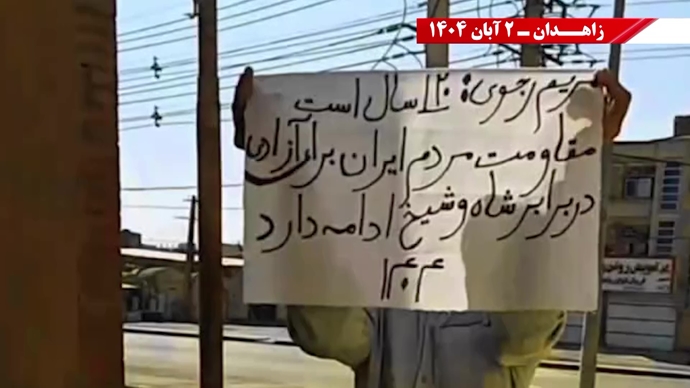 زاهدان ـ ۲ آبان ۱۴۰۴
مریم رجوی: ۱۲۰ سال است
مقاومت مردم ایران برای آزادی
در برابر شاه و شیخ ادامه دارد
۱۴۰۴